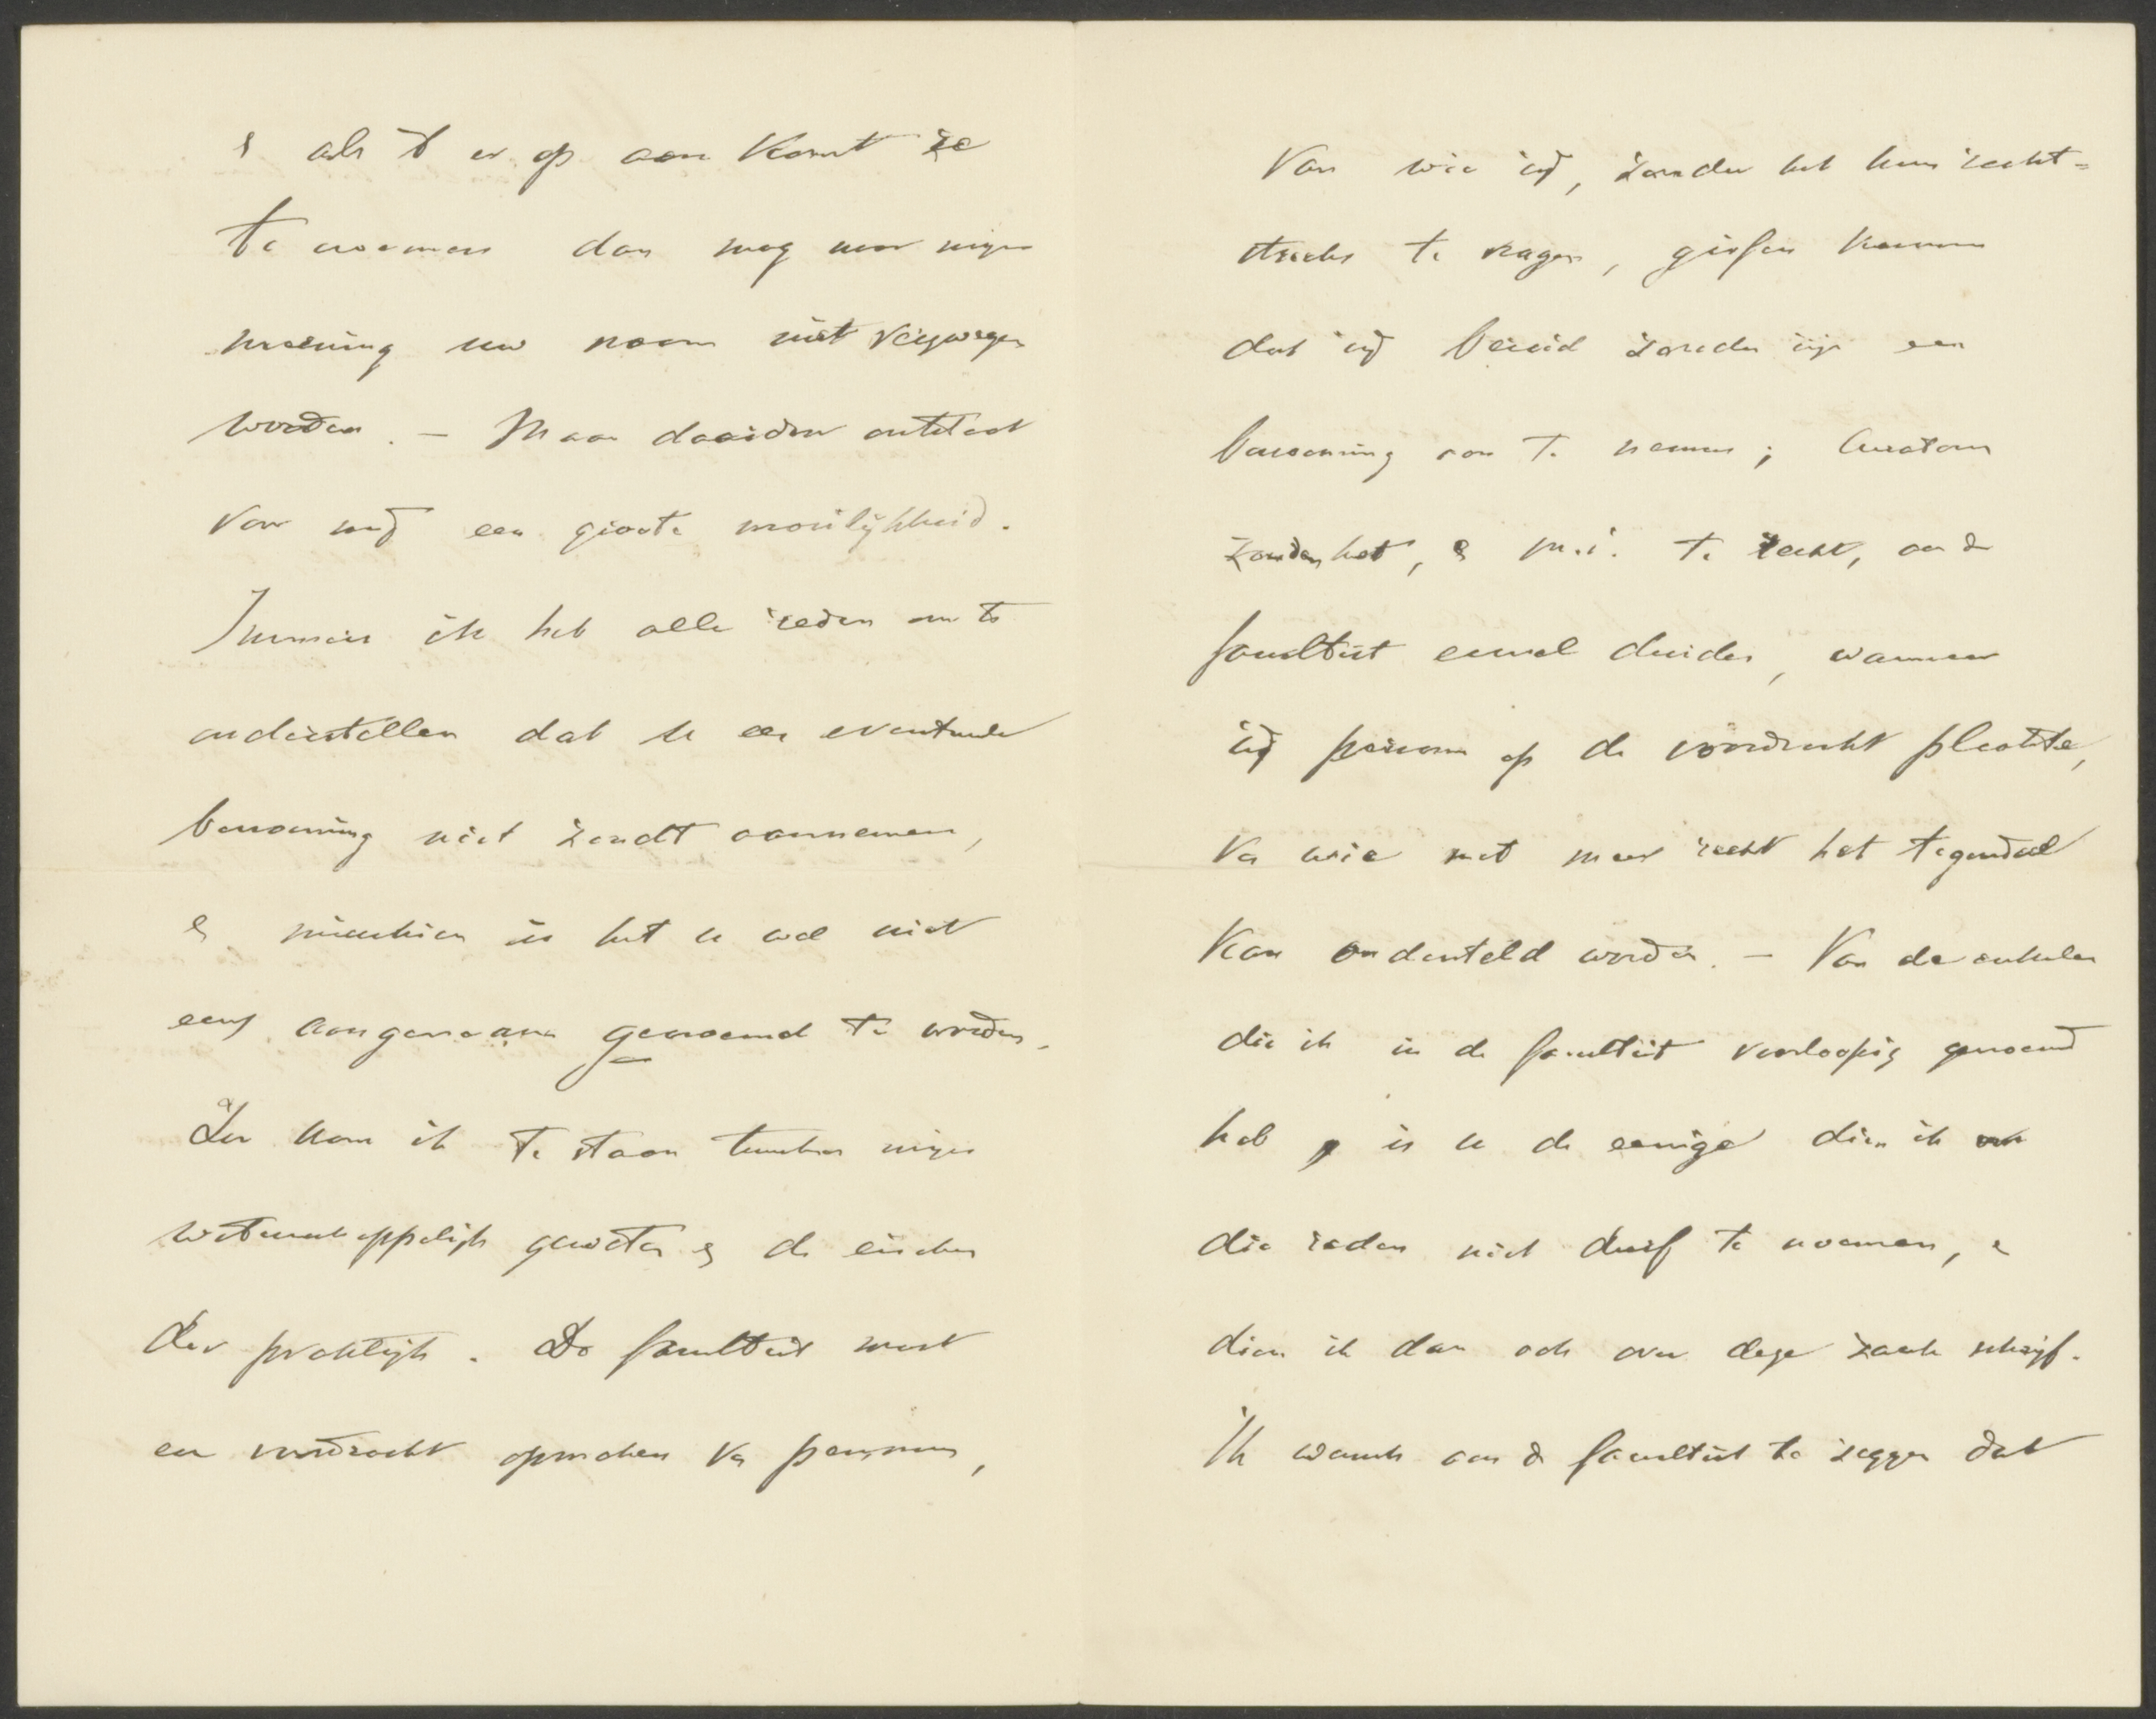 & als 't er op aan komt ze
te noemen dan mag naar mijne
meening uw naam niet verzwegen
worden. — Maar daardoor ontstaat
voor mij een groote moeilijkheid.
Immers ik heb alle reden om te
onderstellen dat u een eventueele
benoeming niet zoudt aannemen,
& misschien is het u wel niet
eens aangenaam genoemd te worden.
Zoo kom ik te staan tusschen mijn
wetenschappelijk geweten & de eischen
der praktijk. De faculteit moet
een voordracht opmaken van personen,
Van wie wij, zonder het hun recht=
streeks te vragen, gissen kunnen
dat zij bereid zouden zijn een
benoeming aan te nemen; Curatoren
zouden het, & m.i. te recht, aan de
faculteit euvel duiden, wanneer
zij personen op de voordracht plaatste,
van wie met meer recht het tegendeel
kan ondersteld worden. — Van de enkelen
die ik in de faculteit voorloopig genoemd
heb is u de eenige dien ik om
die reden niet durf te noemen, &
dien ik dan ook over deze zaak schrijf.
Ik wensch aan de faculteit te zeggen dat